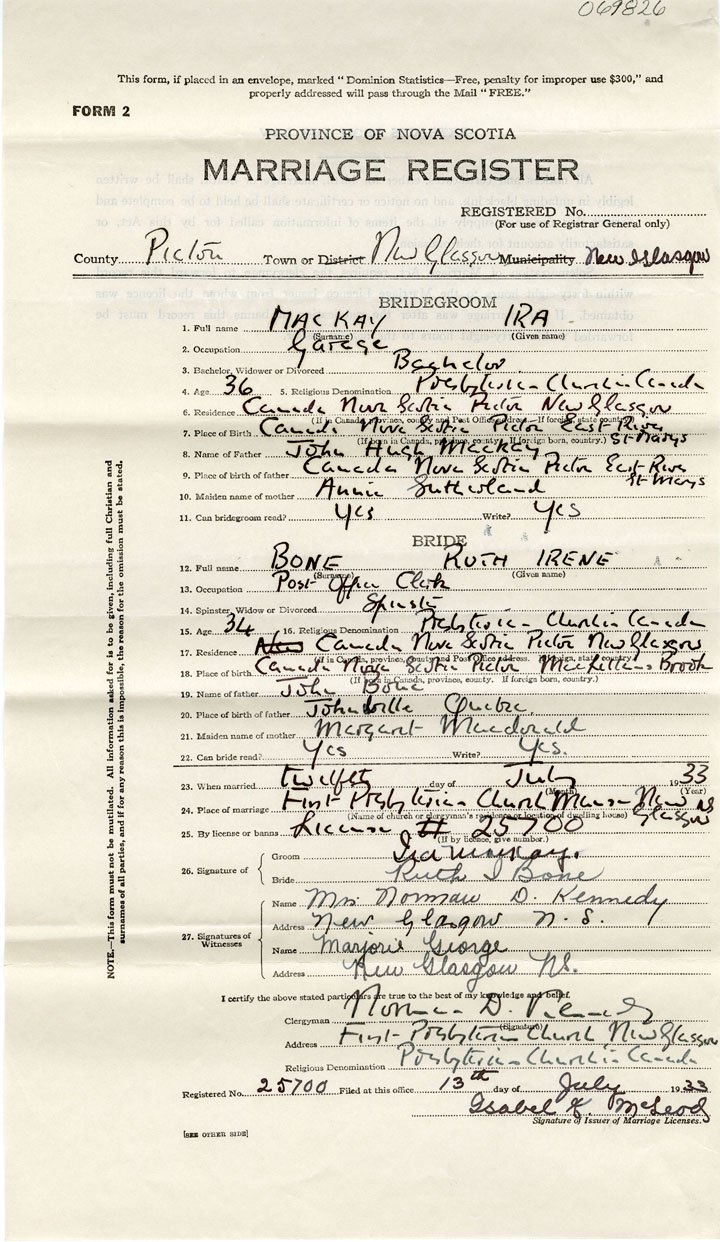 069826
This form, if placed in an envelope, marked "Dominion Statistics—Free, penalty for improper use $300," and
properly addressed will pass through the Mail "FREE."
FORM 2
PROVINCE OF NOVA SCOTIA
MARRIAGE REGISTER
REGISTERED No.
(For use of Registrar General only)
County Pictou Town or District New Glasgow Municipality New Glasgow
BRIDEGROOM
1. Full name MACKAY IRA
(Surname) (Given name)
2. Occupation Garage
3. Bachelor, Widower or Divorced Bachelor
4. Age 36 5. Religious Denomination Presbyterian Church in Canada
6. Residence Canada Nova Scotia Pictou New Glasgow
(If in Canada, province, county and Post Office address. If foreign, state country)
7. Place of Birth Canada Nova Scotia Pictou East River St Marys
(If born in Canada, province, county. If foreign born, country.)
8. Name of Father John Hugh MacKay
9. Place of birth of father Canada Nova Scotia Pictou East River St Marys
10. Maiden name of mother Annie Sutherland
11. Can bridegroom read? Yes Write? Yes
BRIDE
12. Full name BONE RUTH IRENE
(Surname) (Given name)
13. Occupation Post Office Clerk
14. Spinster, Widow or Divorced Spinster
15. Age 34 16. Religious Denomination Presbyterian Church in Canada
17. Residence Canada Nova Scotia Pictou New Glasgow
(If in Canada, province, county and Post Office address. If foreign, state country)
18. Place of birth Canada Nova Scotia Pictou MacLellans Brook
(If born in Canada, province, county. If foreign born, country.)
19. Name of father John Bone
20. Place of birth of father Johnville Quebec
21. Maiden name of mother Margaret Macdonald
22. Can bride read? Yes Write? Yes.
23. When married twelfth day of July 1933
(Month) (Year)
24. Place of marriage First Presbyterian Church Manse New Glasgow NS
(Name of church or clergyman's residence or location of dwelling house)
25. By license or banns License # 25700
(If by licence, give number.)
26. Signature of Groom Ira MacKay.
Bride Ruth I Bone
27. Signatures of Witnesses
Name Mrs Norman D. Kennedy
Address New Glasgow N. S.
Name Marjorie George
Address New Glasgow NS.
I certify the above stated particulars are true to the best of my knowledge and belief.
Clergyman Norman D. Kennedy
(Signature)
Address First Presbyterian Church New Glasgow
Religious Denomination Presbyterian Church in Canada
Registered No. 25700 Filed at this office 13th day of July 1933
Isabel McLeod
Signature of Issuer of Marriage Licenses.
[SEE OTHER SIDE]
NOTE.—This form must not be mutilated. All information asked for is to be given, including full Christian and
surnames of all parties, and if for any reason this is impossible, the reason for the omission must be stated.